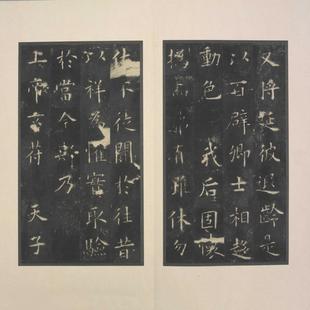 又將延彼遐齡是
以百辟卿士相趍
動色 我后固懷
撝弗有雖休勿
休不徒聞於往昔
以祥為懼實取驗
於當今斯乃
上帝玄符 天子